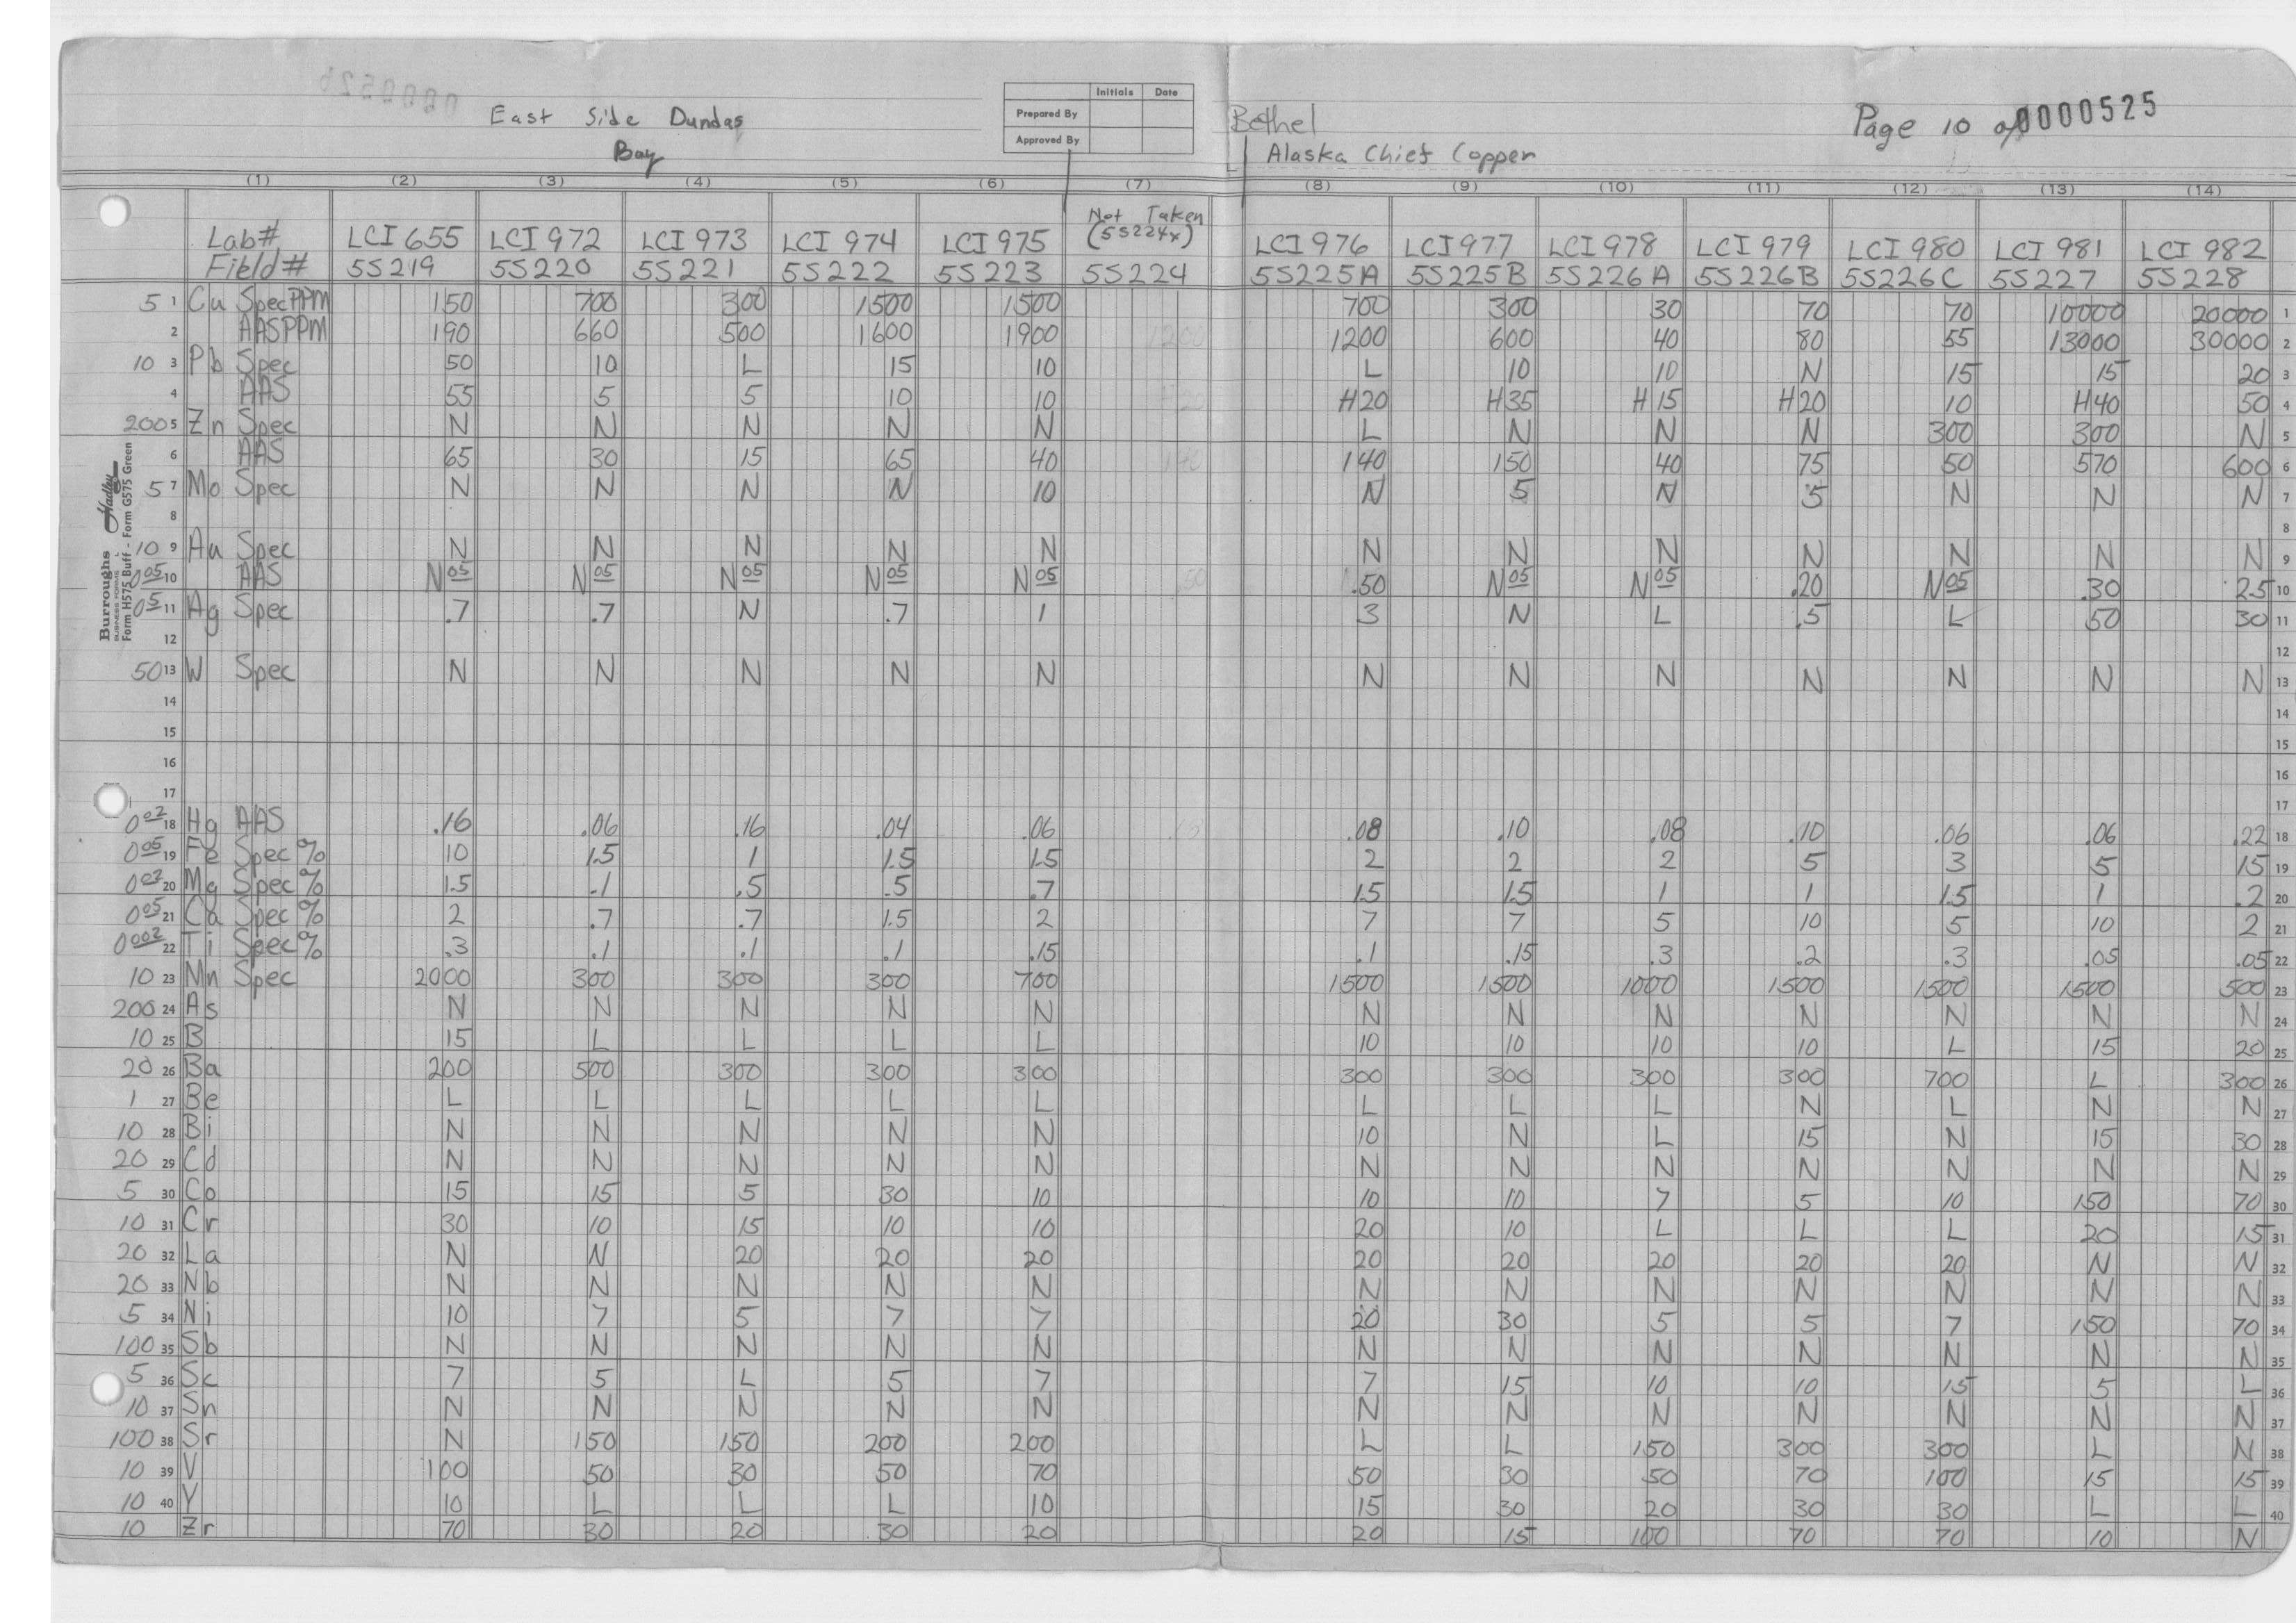 0000526
East Side Dundas
Bay
Initials Date
Prepared By
Approved By
Bethel
Alaska Chief Copper
Page 10 of 0000525
(1) (2) (3) (4) (5) (6) (7) (8) (9) (10) (11) (12) (13) (14)
Not Taken
(5S224x)
Lab# LCI 655 LCI 972 LCI 973 LCI 974 LCI 975 LCI 976 LCI 977 LCI 978 LCI 979 LCI 980 LCI 981 LCI 982
Field# 5S219 5S220 5S221 5S222 5S223 5S224 5S225A 5S225B 5S226A 5S226B 5S226C 5S227 5S228
5 1 Cu Spec PPM 150 700 300 1500 1500 700 300 30 70 70 10000 20000 1
2 AAS PPM 190 660 500 1600 1900 1200 600 40 80 55 13000 30000 2
10 3 Pb Spec 50 10 L 15 10 L 10 10 N 15 15 20 3
4 AAS 55 5 5 10 10 H20 H35 H15 H20 10 H40 50 4
200 5 Zn Spec N N N N N L N N N 300 300 N 5
6 AAS 65 30 15 65 40 140 150 40 75 50 570 600 6
5 7 Mo Spec N N N N 10 N 5 N 5 N N N 7
8 8
10 9 Au Spec N N N N N N N N N N N N 9
005 10 AAS N05 N05 N05 N05 N05 .50 N05 N05 .20 N05 .30 2.5 10
05 11 Ag Spec .7 .7 N .7 1 3 N L .5 L 50 30 11
12 12
50 13 W Spec N N N N N N N N N N N N 13
14 14
15 15
16 16
17 17
002 18 Hg AAS .16 .06 .16 .04 .06 .08 .10 .08 .10 .06 .06 .22 18
005 19 Fe Spec % 10 1.5 1 1.5 1.5 2 2 2 5 3 5 15 19
002 20 Mg Spec % 1.5 .1 .5 .5 .7 1.5 1.5 1 1 1.5 1 .2 20
005 21 Ca Spec % 2 .7 .7 1.5 2 7 7 5 10 5 10 2 21
0002 22 Ti Spec % .3 .1 .1 .1 .15 .1 .15 .3 .2 .3 .05 .05 22
10 23 Mn Spec 2000 300 300 300 700 1500 1500 1000 1500 1500 1500 500 23
200 24 As N N N N N N N N N N N N 24
10 25 B 15 L L L L 10 10 10 10 L 15 20 25
20 26 Ba 200 500 300 300 300 300 300 300 300 700 L 300 26
1 27 Be L L L L L L L L N L N N 27
10 28 Bi N N N N N 10 N L 15 N 15 30 28
20 29 Cd N N N N N N N N N N N N 29
5 30 Co 15 15 5 30 10 10 10 7 5 10 150 70 30
10 31 Cr 30 10 15 10 10 20 10 L L L 20 15 31
20 32 La N N 20 20 20 20 20 20 20 20 N N 32
20 33 Nb N N N N N N N N N N N N 33
5 34 Ni 10 7 5 7 7 20 30 5 5 7 150 70 34
100 35 Sb N N N N N N N N N N N N 35
5 36 Sc 7 5 L 5 7 7 15 10 10 15 5 L 36
10 37 Sn N N N N N N N N N N N N 37
100 38 Sr N 150 150 200 200 L L 150 300 300 L N 38
10 39 V 100 50 30 50 70 50 30 50 70 100 15 15 39
10 40 Y 10 L L L 10 15 30 20 30 30 L L 40
10 Zr 70 30 20 30 20 20 15 100 70 70 10 N
Burroughs Hadley
BUSINESS FORMS
Form H575 Buff - Form G575 Green